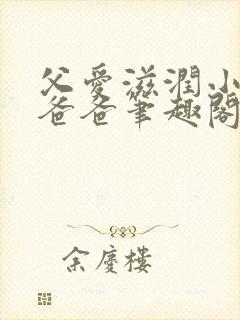 父愛滋潤小
爸爸筆趣閣
余慶樓